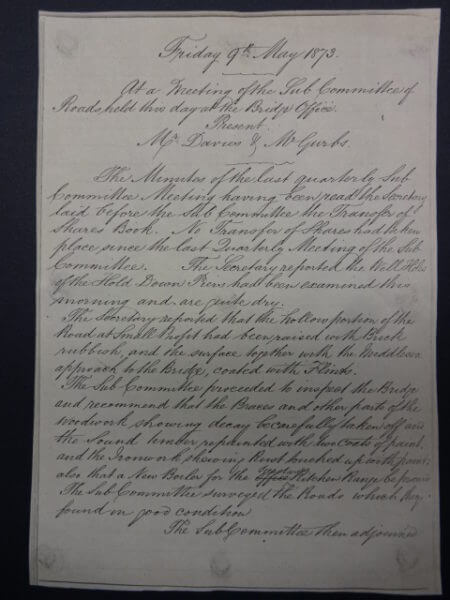 Friday 9th May 1873.
At a Meeting of the Sub Committee of
Roads, held this day at the Bridge Office.
Present.
Mr. Davies & Mr Gurbs.
The Minutes of the last quarterly Sub
Committee Meeting having been read, the Secretary
laid before the Sub Committee the Transfer of
Shares Book. No Transfer of Shares had taken
place, since the last Quarterly Meeting of the Sub
Committee. The Secretary reported the Well Holes
of the Hold Down Piers had been examined this
morning and are quite dry.
The Secretary reported that the hollow portion of the
Road at Small Profit had been raised with Brick
rubbish, and the surface together with the Middlesex
approach to the Bridge, coated with Flints.
The Sub Committee proceeded to inspect the Bridge
and recommend that the Braces and other parts of the
woodwork shewing decay be carefully taken off and
the Sound timber repainted with two coats of paint,
and the Ironwork shewing Rust touched up with paint;
also that a New Boiler for the Office Kitchen Range be
The Sub Committee surveyed the Roads which they
found in good condition
The Sub Committee then adjourned